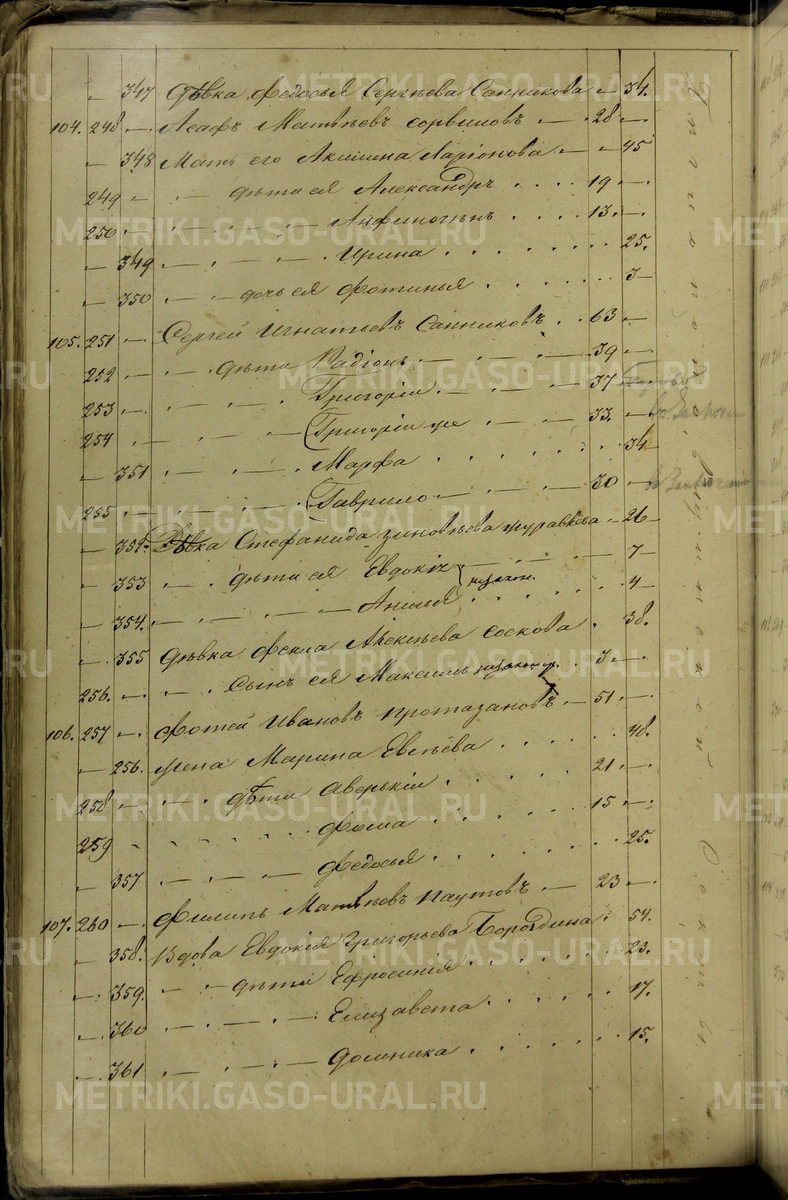 — 347 дѣвка Федосья Сергѣева Санникова — 34.
104. 248 — Асафъ Матвѣевъ — 28 —
— 348 Мать его Акилина Ларіонова — 45
249 — дѣти ея Александръ . . . . 19 —
250 — Анфиногенъ . . . . 13. —
— 349 — Ирина . . . . 25.
— 350 — дочь ея Фотинья . . . . 3
105. 251 — Сергей Игнатьевъ Санниковъ . . 63 —
252 — дѣти Радіонъ — 39 —
253 Григорій — 37
254 — Григорій же — 33. —
— 351 — Марфа . . . . 34
255 — Гаврило — 30 —
— 352. Дѣвка Стефанида Зиновьева Журавлева — 26
— 353 — дѣти ея Евдокія незакон. — 7
— 354. — Анисья . . . . 4
— 355 дѣвка Фекла Алексѣева Соскова . 38.
256. — Сынъ ея Максимъ . . 3 —
106. 257 — Фотей Ивановъ Протазановъ — 51 —
— 356. жена Марина Евсѣева . . . . 48.
258 — дѣти Аверькій . . . . 21 —
259 Фома . . . . 15 —
— 357 — Федосья . . . . 25.
107. 260 — Филипъ Матвѣевъ Паутовъ — 23 —
— 358. Вдова Евдокія Григорьева Бородина . 54.
— 359. — дѣти Ефросинія . . . . 23.
— 360 — Елизавета . . . . 17.
— 361 — Домника . . . . 15.
METRIKI.GASO-URAL.RU